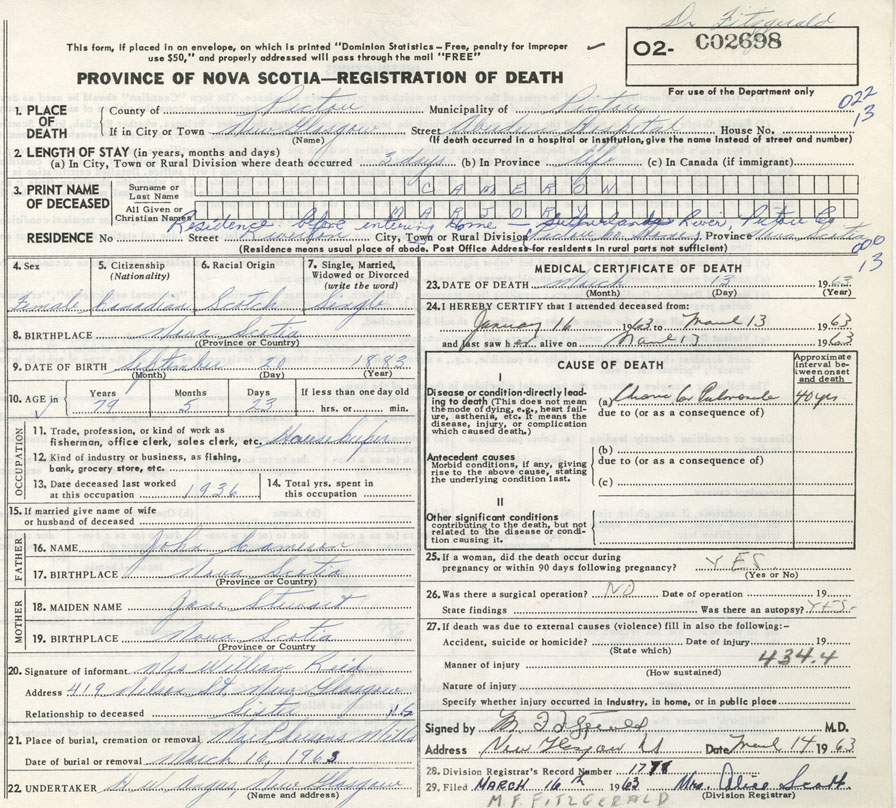 Dr Fitzgerald
This form, if placed in an envelope, on which is printed "Dominion Statistics – Free, penalty for improper
use $50," and properly addressed will pass through the mail "FREE"
O2- C02698
For use of the Department only
PROVINCE OF NOVA SCOTIA—REGISTRATION OF DEATH
022
13
1. PLACE OF DEATH County of Pictou Municipality of Pictou
If in City or Town New Glasgow Street Aberdeen Hospital House No.
(Name) (If death occurred in a hospital or institution, give the name instead of street and number)
2. LENGTH OF STAY (in years, months and days)
(a) In City, Town or Rural Division where death occurred 3 days (b) In Province life (c) In Canada (if immigrant)
3. PRINT NAME OF DECEASED
Surname or Last Name CAMERON
All Given or Christian Names MARJORY
Residence before entering home — Sutherlands River, Pictou Co
RESIDENCE No Street City, Town or Rural Division Province Nova Scotia
(Residence means usual place of abode. Post Office Address for residents in rural parts not sufficient)
000
13
4. Sex Female
5. Citizenship (Nationality) Canadian
6. Racial Origin Scotch
7. Single, Married, Widowed or Divorced (write the word) Single
8. BIRTHPLACE Nova Scotia
(Province or Country)
9. DATE OF BIRTH September 20 1883
(Month) (Day) (Year)
10. AGE in Years 79 Months 5 Days 23 If less than one day old hrs. or min.
OCCUPATION
11. Trade, profession, or kind of work as
fisherman, office clerk, sales clerk, etc. Housekeeper
12. Kind of industry or business, as fishing,
bank, grocery store, etc.
13. Date deceased last worked at this occupation 1936
14. Total yrs. spent in this occupation
15. If married give name of wife
or husband of deceased
FATHER
16. NAME John Cameron
17. BIRTHPLACE Nova Scotia
(Province or Country)
MOTHER
18. MAIDEN NAME Jane Stewart
19. BIRTHPLACE Nova Scotia
(Province or Country)
20. Signature of informant Mrs William Reid
Address 419 Nelson St New Glasgow
Relationship to deceased Sister
21. Place of burial, cremation or removal McPhersons Mills
Date of burial or removal March 16, 1963
22. UNDERTAKER H. W. Angus, New Glasgow
(Name and address)
MEDICAL CERTIFICATE OF DEATH
23. DATE OF DEATH March 13 1963
(Month) (Day) (Year)
24. I HEREBY CERTIFY that I attended deceased from:
January 16 1963 to March 13 1963
and last saw her alive on March 13 1963
CAUSE OF DEATH
Approximate interval between onset and death
I
Disease or condition directly leading to death (This does not mean the mode of dying, e.g., heart failure, asthenia, etc. It means the disease, injury, or complication which caused death.)
(a) Chronic Cor Pulmonale 40 yrs
due to (or as a consequence of)
Antecedent causes
Morbid conditions, if any, giving rise to the above cause, stating the underlying condition last.
(b)
due to (or as a consequence of)
(c)
II
Other significant conditions
contributing to the death, but not related to the disease or condition causing it.
25. If a woman, did the death occur during
pregnancy or within 90 days following pregnancy? YES
(Yes or No)
26. Was there a surgical operation? NO Date of operation 19
State findings Was there an autopsy? YES.
27. If death was due to external causes (violence) fill in also the following:-
Accident, suicide or homicide? Date of injury 19
(State which)
434.4
Manner of injury
(How sustained)
Nature of injury
Specify whether injury occurred in Industry, in home, or in public place
Signed by M. F. Fitzgerald M.D.
Address New Glasgow NS Date March 14 1963
28. Division Registrar's Record Number 1778
29. Filed MARCH 16th 1963 Mrs. Alice Scott
(Division Registrar)
M.F. FITZGERALD